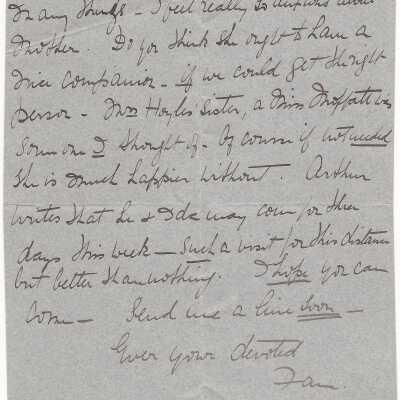 many things - I feel really so anxious about
Mother. Do you think she ought to have a
nice companion - if we could get the right
person - Mrs Hoyle's sister, a Miss Moffatt is
some one I thought of - Of course if not needed
she is much happier without. Arthur
writes that he & Ida may come for three
days this week - such a visit for this distance
but better than nothing. I hope you can
come - Send me a line soon -
Ever your devoted